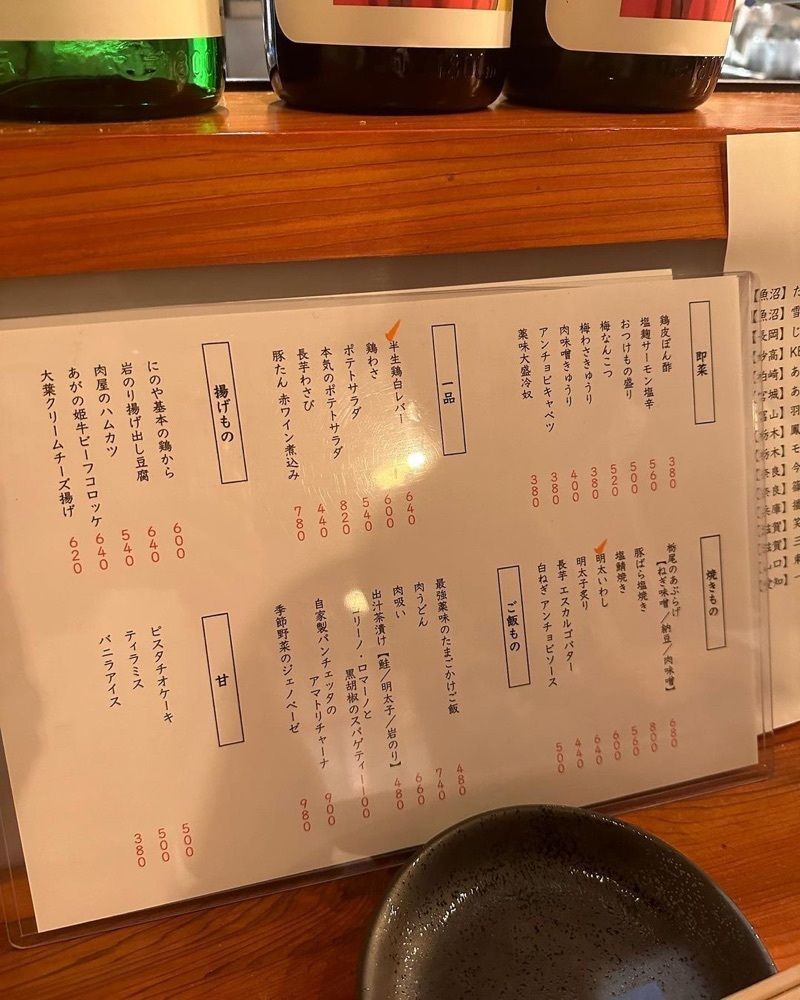 即菜
鶏皮ぽん酢 380
塩麹サーモン塩辛 560
おつけもの盛り 500
梅なんこつ 520
梅わさきゅうり 380
肉味噌きゅうり 400
アンチョビキャベツ 380
薬味大盛冷奴 380
一品
半生鶏白レバー 640
鶏わさ 600
ポテトサラダ 540
本気のポテトサラダ 820
長芋わさび 440
豚たん 赤ワイン煮込み 780
揚げもの
にのや基本の鶏から 600
岩のり揚げ出し豆腐 640
肉屋のハムカツ 540
あがの姫牛ビーフコロッケ 640
大葉クリームチーズ揚げ 620
焼きもの
栃尾のあぶらげ
【ねぎ味噌/納豆/肉味噌】 680
豚ばら塩焼き 800
塩鯖焼き 560
明太いわし 600
明太子炙り 640
長芋 エスカルゴバター 440
白ねぎ アンチョビソース 500
ご飯もの
最強薬味のたまごかけご飯 480
肉うどん 740
肉吸い 660
出汁茶漬け【鮭/明太子/岩のり】 480
リーノ・ロマーノと
黒胡椒のスパゲティー
自家製パンチェッタの
アマトリチャーナ 900
季節野菜のジェノベーゼ 980
甘
ピスタチオケーキ 500
ティラミス 500
バニラアイス 380
【魚沼】
【魚沼】雪
長岡】じ
妙高】KE
柏崎】あ
宮城】あ
富山】羽
栃木】鳳
栃木】モ
奈良】今
奈良】篠
兵庫】播
滋賀】笑
滋賀】三
山口】東
愛知】一